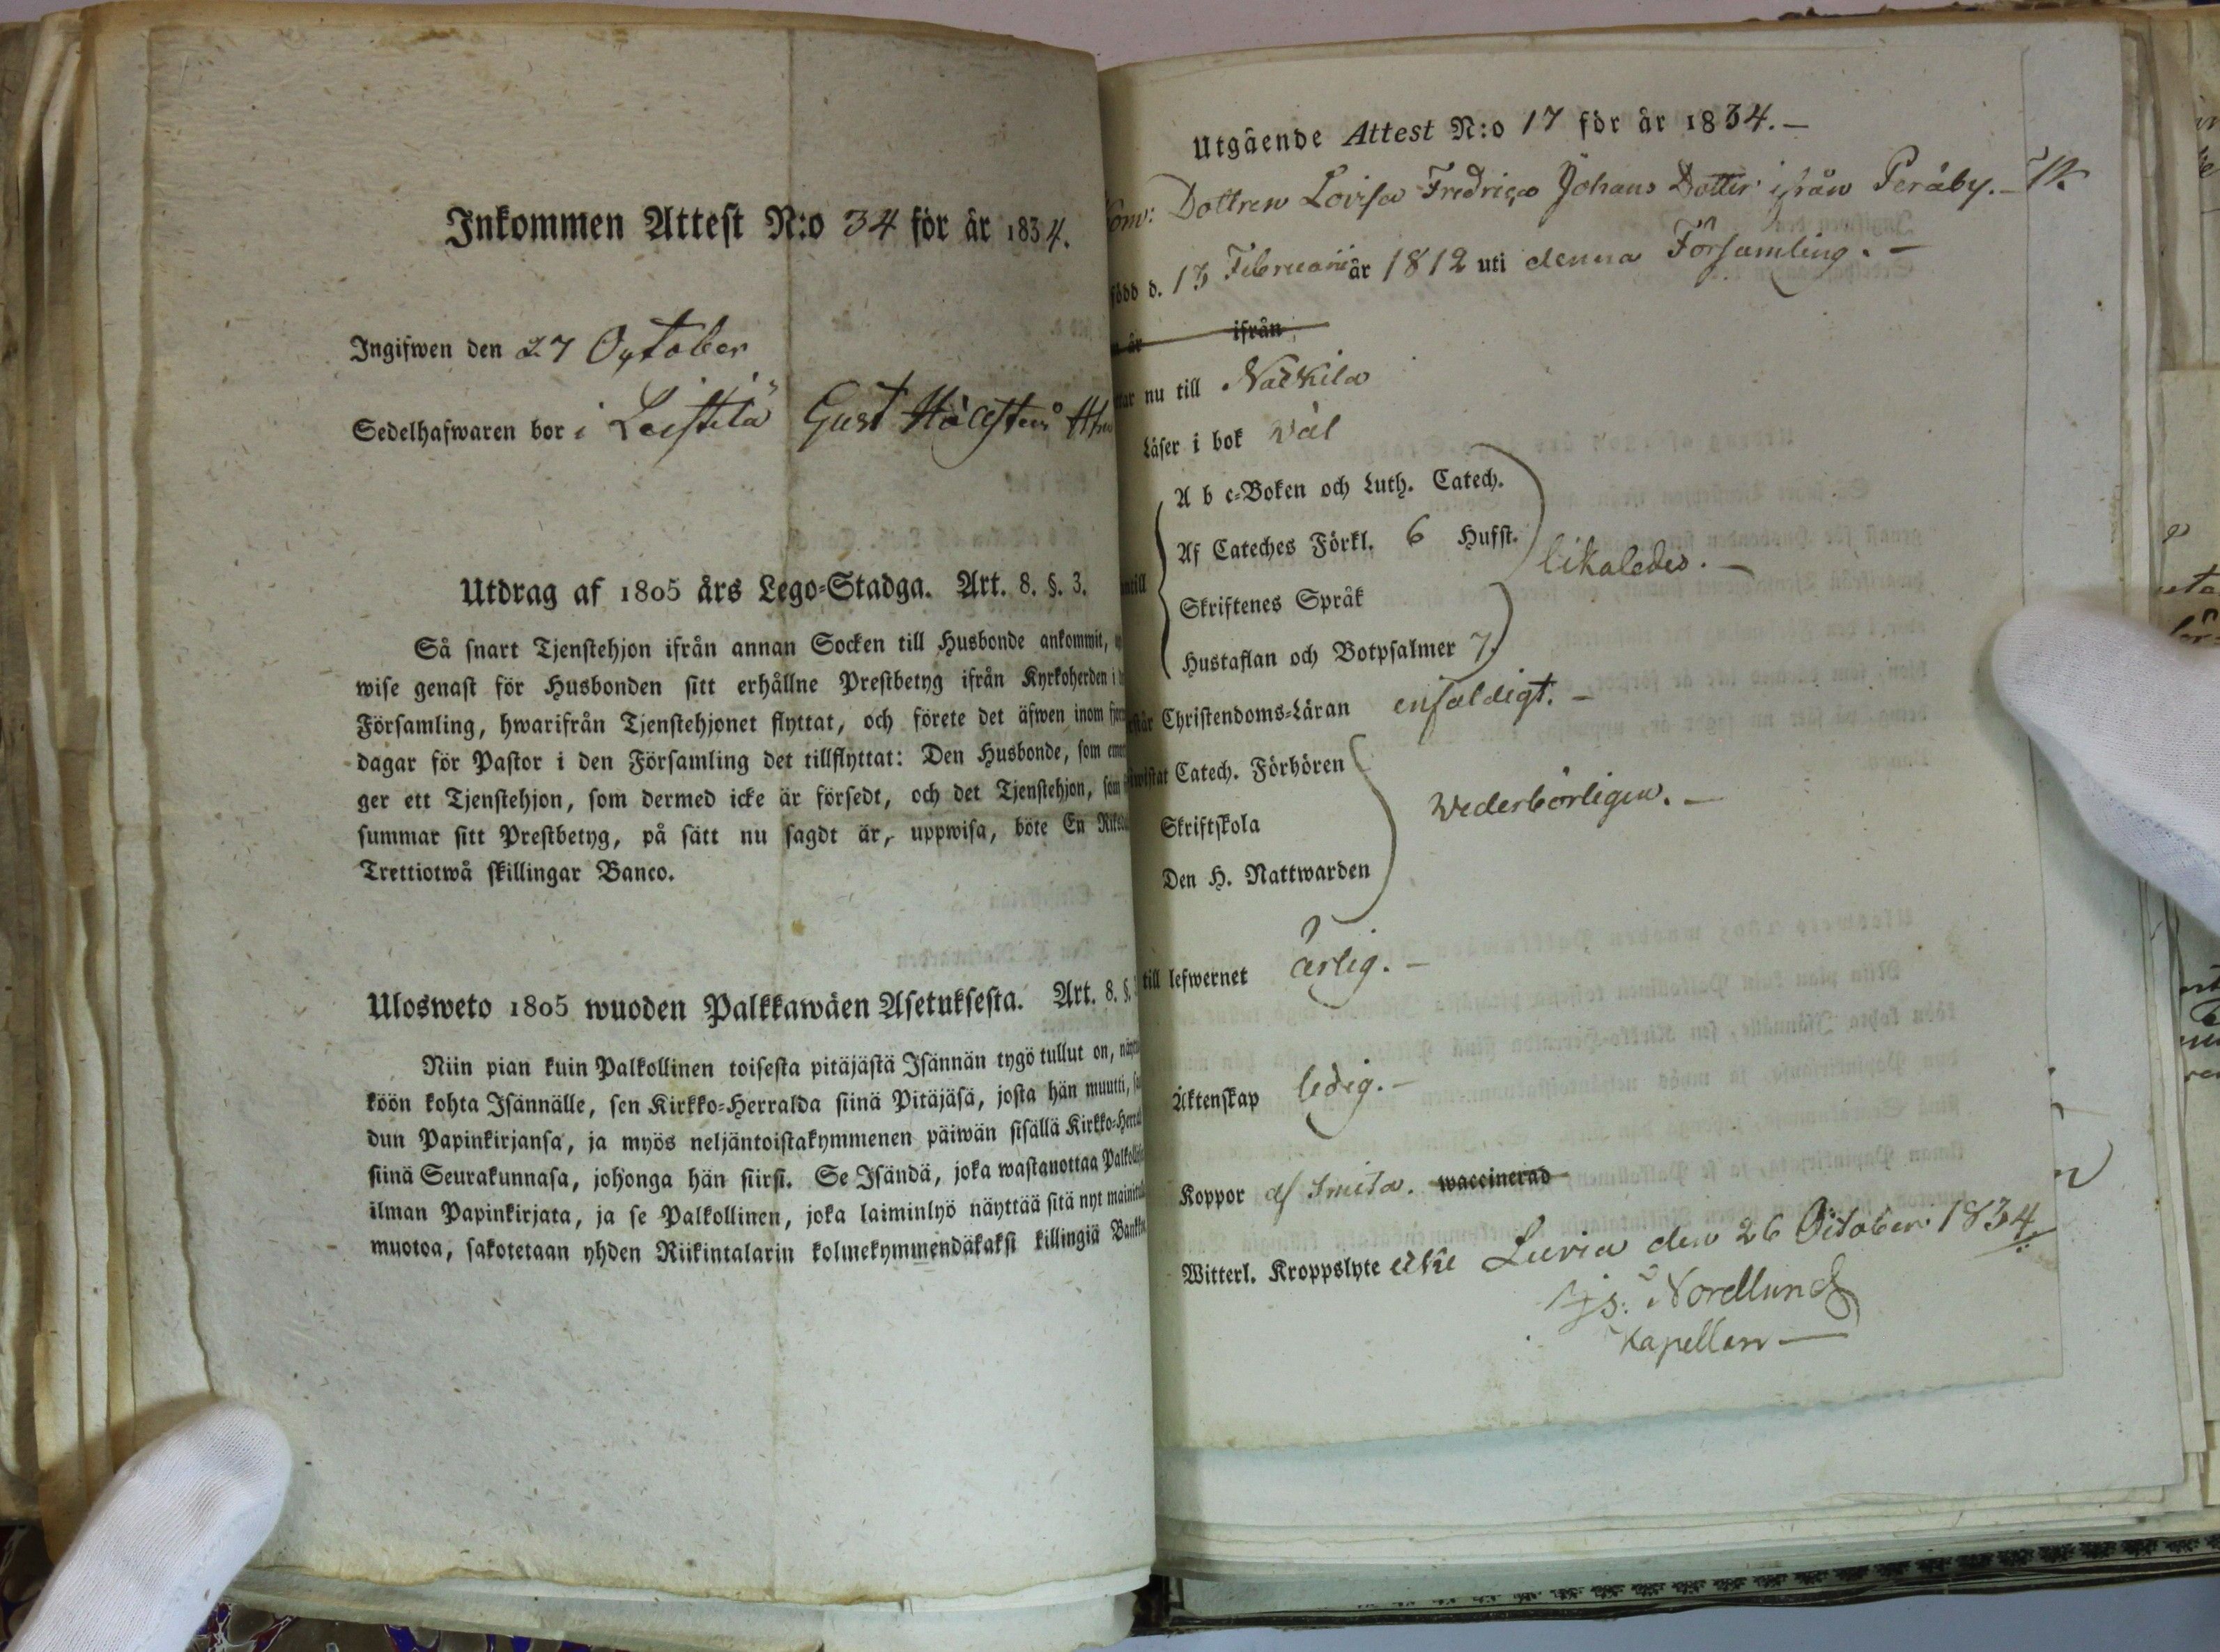 Inkommen Attest N:o 34 för år 1834.
Ingifwen den 27 October
Sedelhafwaren bor i Leistilä Gust
Utdrag af 1805 års Lego-Stadga. Art. 8. §. 3.
Så snart Tjenstehjon ifrån annan Socken till Husbonde ankommit,
wise genast för Husbonden sitt erhållne Prestbetyg ifrån Kyrkoherden i
Församling, hwarifrån Tjenstehjonet flyttat, och förete det äfwen inom
dagar för Pastor i den Församling det tillflyttat: Den Husbonde, som
ger ett Tjenstehjon, som dermed icke är försedt, och det Tjenstehjon, som
summar sitt Prestbetyg, på sätt nu sagdt är, uppwisa, böte En
Trettiotwå skillingar Banco.
Ulosweto 1805 wuoden Palkkawäen Asetuksesta. Art. 8. §.
Niin pian kuin Palkollinen toisesta pitäjästä Isännän tygö tullut on,
köön kohta Isännälle, sen Kirkko-Herralda siinä Pitäjäsä, josta hän muutti,
dun Papinkirjansa, ja myös neljäntoistakymmenen päiwän sisällä
siinä Seurakunnasa, johonga hän siirsi. Se Isändä, joka wastanottaa
ilman Papinkirjata, ja se Palkollinen, joka laiminlyö näyttää sitä nyt
muotoa, sakotetaan yhden Riikintalarin kolmekymmendäkaksi killingiä
Utgående Attest N:o 17 för år 1834.—
Dottren Lovisa Fredrica Johans Dotter ifrån Peräby.—
född d. 13 Februarii år 1812 uti denna Församling.—
år ifrån
nu till Nackila
Läser i bok väl
A b c-Boken och Luth. Catech.
Af Cateches Förkl. 6 Hufst.
likaledes.—
Skriftenes Språk
Hustaflan och Botpsalmer 7.
Christendoms-Läran enfaldigt.—
Catech. Förhören
wederbörligen.—
Skriftskola
Den H. Nattwarden
till lefwernet ärlig.—
Äktenskap ledig.—
Koppor af smitta. waccinerad
Witterl. Kroppslyte icke Luvia den 26 October 1834.
Nordlund
Kapellan—